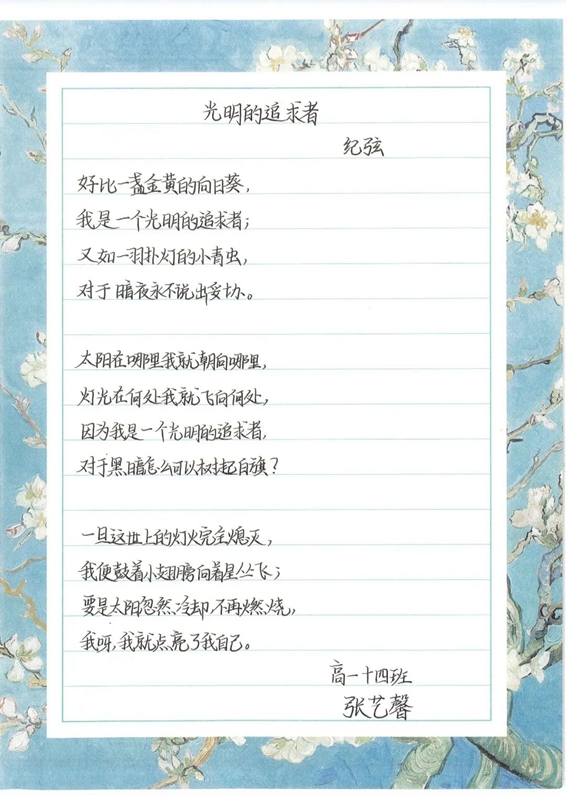 光明的追求者
纪弦
好比一盏金黄的向日葵，
我是一个光明的追求者；
又如一羽扑灯的小青虫，
对于暗夜永不说出妥协。
太阳在哪里我就朝向哪里，
灯光在何处我就飞向何处，
因为我是一个光明的追求者，
对于黑暗怎么可以树起白旗？
一旦这世上的灯火完全熄灭，
我便鼓着小翅膀向着星丛飞；
要是太阳忽然冷却，不再燃烧，
我呀，我就点亮了我自己。
高一十四班
张艺馨